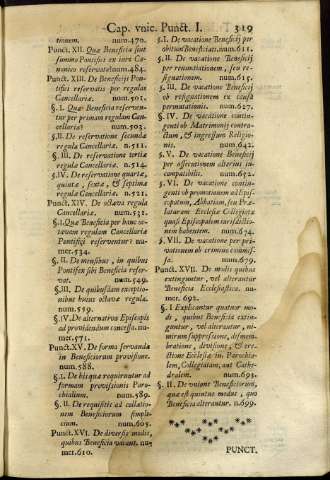 Cap. vnic. Punct. I. 319
tionem. num.470.
Punct. XII. Quæ Beneficia sint
summo Pontifici ex iure Ca-
nonico reservata? num.484.
Punct. XIII. De Beneficijs Pon-
tifici reservatis per regulas
Cancellariæ. num.501.
§. I. Quæ Beneficia reserven-
tur per primam regulam Can-
cellariæ? num.503.
§. II. De reservatione secundæ
regulæ Cancellariæ. n.511.
§. III. De reservatione tertiæ
regulæ Cancellariæ. n.514.
§. IV. De reservatione quartæ,
quintæ, sextæ, & septimæ
regulæ Cancellariæ. n.521.
Punct. XIV. De octava regula
Cancellariæ. num.531.
§. I. Quæ Beneficia per hanc oc-
tavam regulam Cancellariæ
Pontifici reserventur? nu-
mer.534.
§. II. De mensibus, in quibus
Pontifex sibi Beneficia reser-
vat. num.549.
§. III. De quibusdam exceptio-
nibus huius octavæ regulæ.
num.559.
§. IV. De alternativa Episcopis
ad providendum concessa. nu-
mer.571.
Punct. XV. De forma servanda
in Beneficiorum provisione.
num.588.
§. I. De his quæ requiruntur ad
formam provisionis Paro-
chialium. num.589.
§. II. De requisitis ad collatio-
nem Beneficiorum simpli-
cium. num.605.
Punct. XVI. De diversis modis,
quibus Beneficia vacant. nu-
mer.610.
§. I. De vacatione Beneficij per
obitum Beneficiati. num.611.
§. II. De vacatione Beneficij
per renuntiationem, seu re-
signationem. num.615.
§. III. De vacatione Beneficij
ob resignationem ex causa
permutationis. num.627.
§. IV. De vacatione contin-
genti ob Matrimonij contra-
ctum, & ingressum Religio-
nis. num.642.
§. V. De vacatione Beneficij
per assecutionem alterius in-
compatibilis. num.652.
§. VI. De vacatione contin-
genti ob promotionem ad Epis-
copatum, Abbatiam, seu Præ-
laturam Ecclesiæ Collegiatæ
quasi Episcopalem iurisdictio-
nem habentem. num.674.
§. VII. De vacatione per pri-
vationem ob crimina commis-
sa. num.679.
Punct. XVII. De modis quibus
extinguntur, vel alterantur
Beneficia Ecclesiastica. nu-
mer. 692.
§. I Explicantur quatuor mo-
di, quibus Beneficia extin-
guntur, vel alterantur, ni-
mirum suppressione, dismem-
bratione, divisione, & ere-
ctione Ecclesiæ in Parochia-
lem, Collegiatam, aut Cathe-
dralem. num.693.
§. II. De vnione Beneficiorum,
quæ est quintus modus, quo
Beneficia alterantur. n.699.
PUNCT.